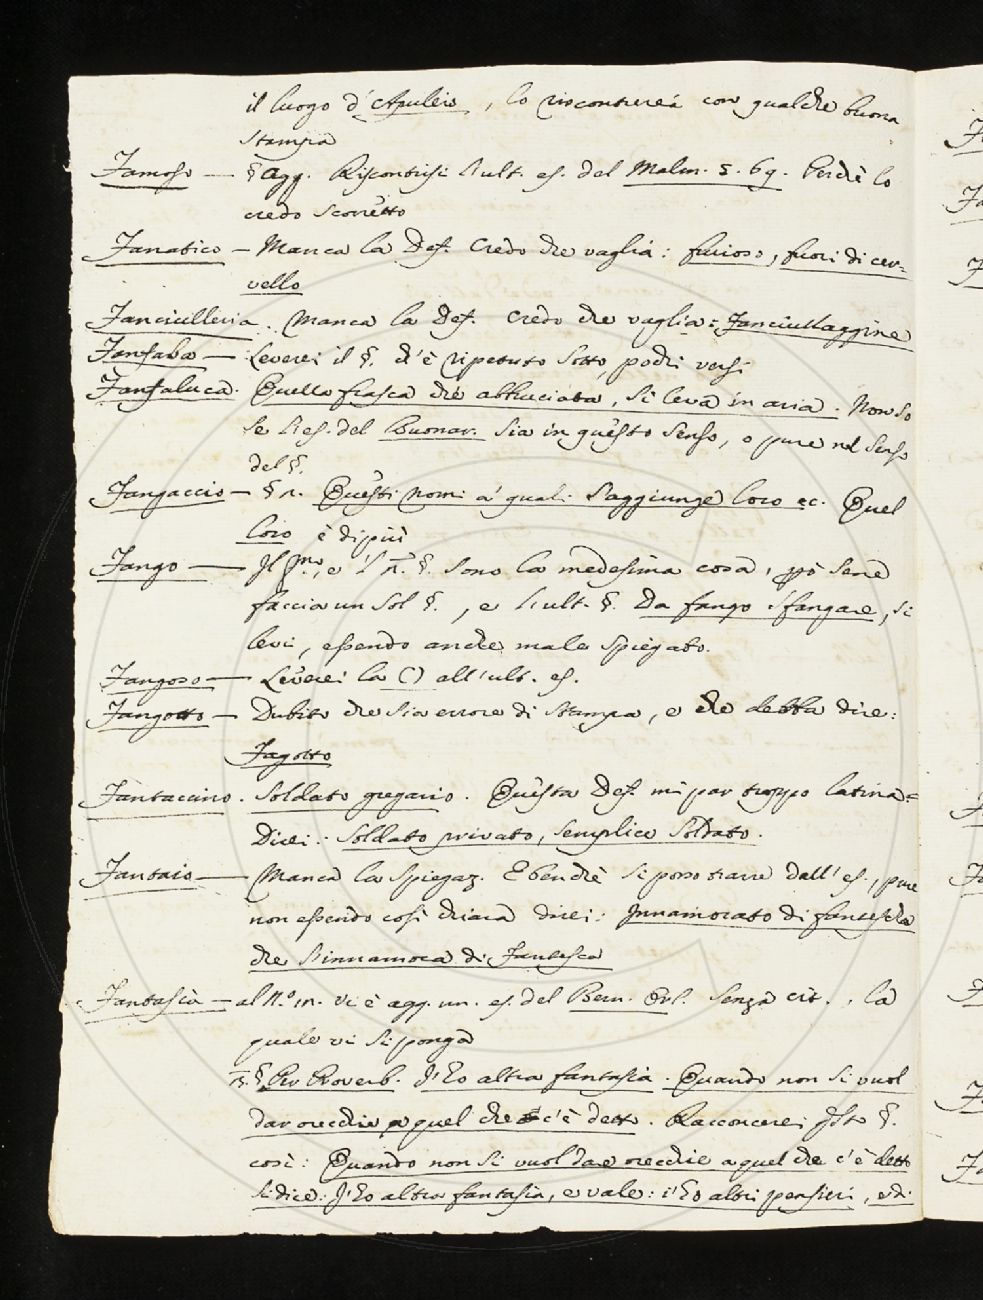 il luogo d'Apuleio, lo riscontrerei con qualche buona
stampa
Famoso — § agg. Riscontrisi l'ult. es. del Malm. 5. 69. Perchè lo
credo scorretto
Fanatico — Manca la Def. Credo che vaglia: furioso, fuori di cer-
vello
Fanciulleria. Manca la Def. Credo che vaglia: Fanciullaggine
Fanfaba — Leverei il §. ch'è ripetuto sotto, pochi versi
Fanfaluca. Quella frasca che abbruciata, si leva in aria. Non so
se l'es. del Buonar. sia in questo senso, o pure nel senso
del §.
Fangaccio — § n. Questi nomi a' quali s'aggiunge loro ec. Quel
loro è di più
Fango — Il pmo, e l' n. §. sono la medesima cosa, però sene
faccia un sol §., e l'ult. §. Da fango sfangare, si
levi, essendo anche male spiegato.
Fangoso — Leverei la () all'ult. es.
Fangotto — Dubito che sia errore di stampa, e che debba dire:
Fagotto
Fantaccino. Soldato gregario. Questa Def. mi par troppo latina=
Direi: Soldato privato, semplice soldato.
Fantaio — Manca la spiegaz. Ebenchè si possa trarre dall'es., pure
non essendo così chiara direi: Innamorato di fantesche
che s'innamora di Fantesca
Fantasia — al n.º in. vi è agg. un. es. del Bern. Orl. senza cit., la
quale vi si ponga
n. § Per Proverb. I' ho altra fantasia. Quando non si vuol
dar orecchie a quel che c'è detto. Racconcerei qsto §.
così: Quando non si vuol dare orecchie a quel che c'è detto
si dice: I' ho altra fantasia, e vale: i' ho altri pensieri, edi